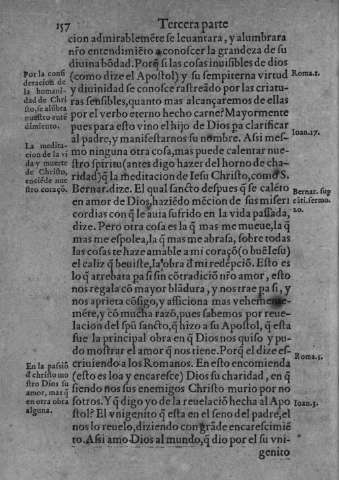 157
Tercera parte
cion admirablemẽte se leuantara, y alumbrara
nr̃o entendimiẽto a conoscer la grandeza de su
diuina bõdad. Porq̃ si las cosas inuisibles de dios
(como dize el Apostol) y su sempiterna virtud
y diuinidad se conosce rastreãdo por las criatu-
ras sensibles, quanto mas alcançaremos de ellas
por el verbo eterno hecho carne? Mayormente
pues para esto vino el hijo de Dios pa clarificar
al padre, y manifestarnos su nombre. Assi mes-
mo ninguna otra cosa, mas puede calentar nue-
stro spiritu (antes digo hazer del horno de cha-
ridad) q̃ la meditacion de Iesu Christo, como S.
Bernar. dize. El qual sancto despues q̃ se calẽto
en amor de Dios, haziẽdo mẽcion de sus miseri
cordias con q̃ le auia sufrido en la vida passada,
dize. Pero otra cosa es la q̃ mas me mueue, la q̃
mas me espolea, la q̃ mas me abrasa, sobre todas
las cosas te haze amable a mi coraçõ (o buẽ Iesu)
el caliz q̃ beuiste, la obra d̃ mi redẽpciõ. Esto es
lo q̃ arrebata pa si sin cõtradiciõ nr̃o amor, esto
nos regala cõ mayor blãdura, y nos trae pa si, y
nos aprieta cõsigo, y afficiona mas vehemente-
mẽte, y cõ mucha razõ, pues sabemos por reue-
lacion del spũ sancto, q̃ hizo a su Apostol, q̃ esta
fue la principal obra en q̃ Dios nos quiso y pu-
do mostrar el amor q̃ nos tiene. Porq̃ el dize es-
criuiendo a los Romanos. En esto encomienda
(esto es loa y encaresce) Dios su charidad, en q̃
siendo nos sus enemigos Christo murio por no
sotros. Y q̃ digo yo de la reuelaciõ hecha al Apo
stol? El vnigenito q̃ esta en el seno del padre, el
nos lo reuelo, diziendo con grãde encarescimiẽ
to. Assi amo Dios al mundo, q̃ dio por el su vni-
genito
Por la consi
deracion de
la humani-
dad de Chri
sto, se alũbra
nuestro entẽ
dimiento.
La medita-
cion de la vi
da y muerte
de Christo,
enciẽde nue
stro coraçõ.
En la passiõ
d̃ christo mo
stro Dios su
amor, mas q̃
en otra obra
alguna.
Roma. 1.
Ioan. 17.
Bernar. sup
cãti. sermo.
20.
Roma. 5.
Ioan. 3.